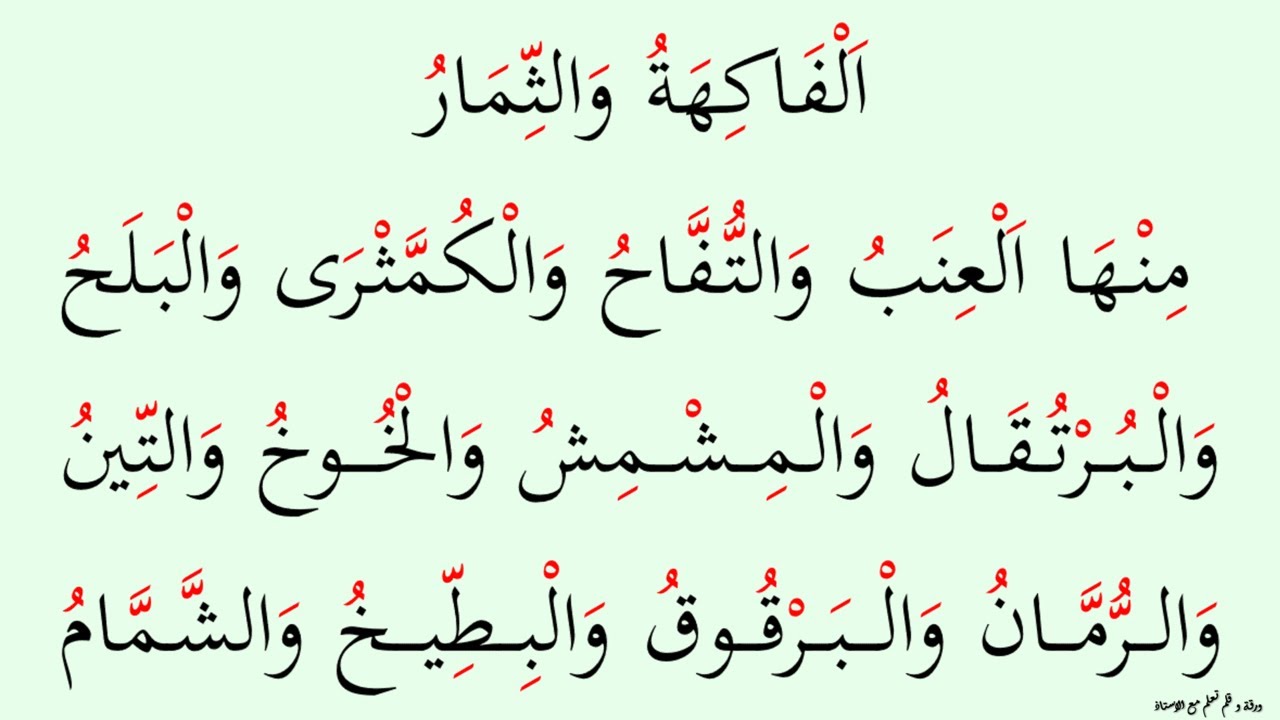 اَلْفَاكِهَةُ وَالثِّمَارُ
مِنْهَا اَلْعِنَبُ وَالتُّفَّاحُ وَالْكُمَّثْرَى وَالْبَلَحُ
وَالْبُرْتُقَالُ وَالْمِشْمِشُ وَالْخُوخُ وَالتِّينُ
وَالرُّمَّانُ وَالْبَرْقُوقُ وَالْبِطِّيخُ وَالشَّمَّامُ
ورقة و قلم تعلم مع الاستاذ